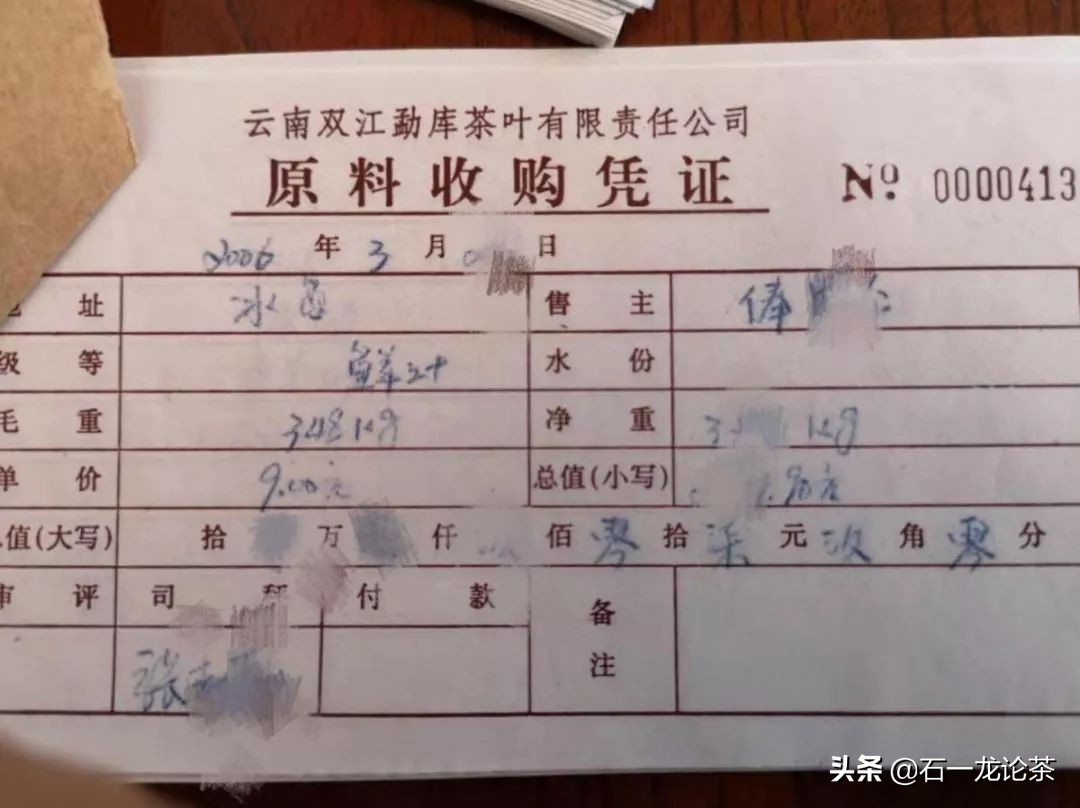 云南双江勐库茶叶有限责任公司
原料收购凭证 Nº 0000413
2006 年 3 月 日
址 冰岛 售主 俸
级等 鲜叶 水份
毛重 348 kg 净重 3 kg
单价 9.00元 总值(小写) .90元
值(大写) 拾 万 仟 佰 零 拾 柒 元 玖 角 零 分
审评 司 付款 备注
张
头条 @石一龙论茶